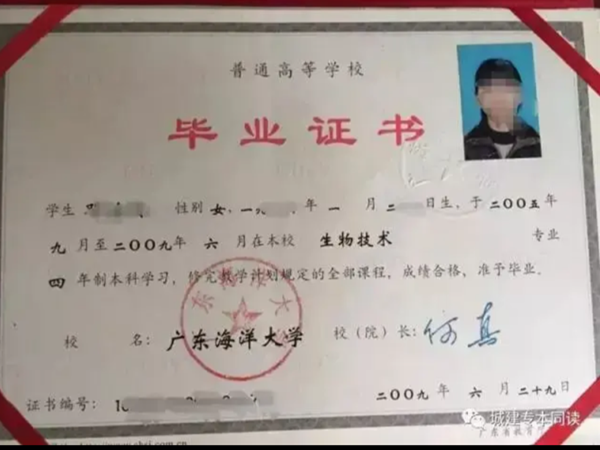 普通高等学校
毕业证书
学生 性别 女,一九 年 一 月 二 日生,于二〇〇五年
九 月至二〇〇九年 六 月在本校 生物技术 专业
四 年制本科学习,修完教学计划规定的全部课程,成绩合格,准予毕业。
校 名:广东海洋大学 校(院)长:何真
证书编号: 二〇〇九年 六 月 二十九日
城建专本同读
广东省教育